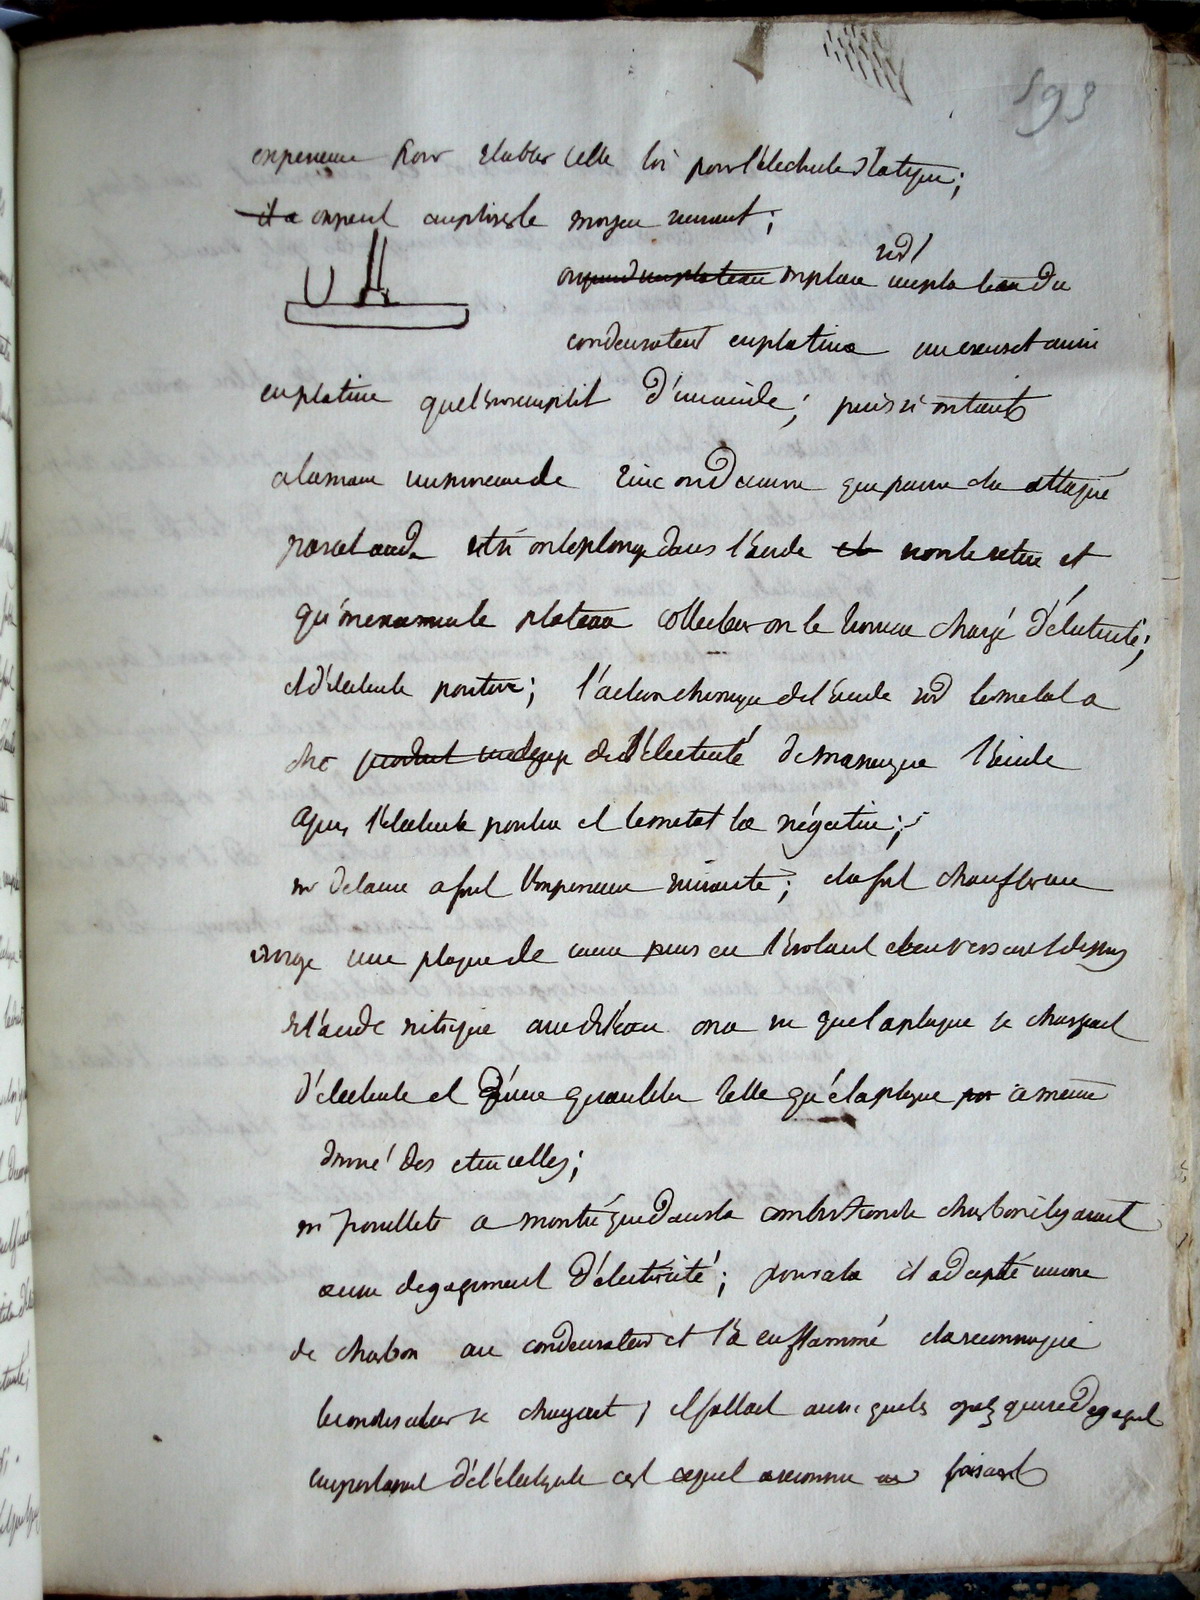 593
experience pour etablir cette loi pour l'électricité statique;
il a on peut employer le moyen suivant;
on prend un plateau on place sur un plateau du
condensateur en platine un creuset aussi
en platine que l'on remplit d'un acide; puis si on tient
a la main un morceau de zinc ou d'un autre que puisse etre attaqué
par cet acide et si on le plonge dans l'acide et qu'on le retire et
qu'on examine le plateau collecteur on le trouve chargé d'électricité;
et d'électricité positive; l'action chimique de l'acide sur le metal a
donc produit un degag de l'électricité de maniere que l'acide
a pris l'électricité positive et le metal la négative;
mr delarive a fait l'experience suivante; il a fait chauffer au
rouge une plaque de cuivre puis en l'isolant et en versant dessus
de l'acide nitrique avec de l'eau on a vu que la plaque se chargeait
d'électricité et d'une quantité telle qu'elle a même
donné des etincelles;
mr Pouillet a montré que dans la combustion de charbon il y avait
aussi degagement d'électricité; pour cela il a adapté un cone
de charbon au condensateur et l'a enflammé et a reconnu que
le condensateur se chargeait; il fallait aussi que le gaz qui se degageait
emportant de l'électricité c'est ce qu'il a reconnu en faisant